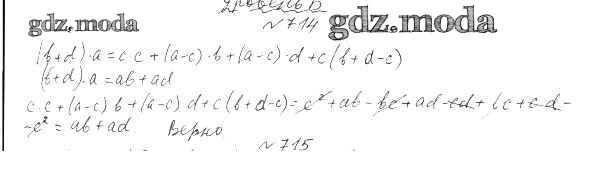 gdz.moda
№714
gdz.moda
(b+d)·a=c·c+(a-c)·b+(a-c)·d+c(b+d-c)
(b+d)·a=ab+ad
c·c+(a-c)b+(a-c)d+c(b+d-c)=c²+ab-bc+ad-cd+bc+cd-
-c²=ab+ad Верно
№715